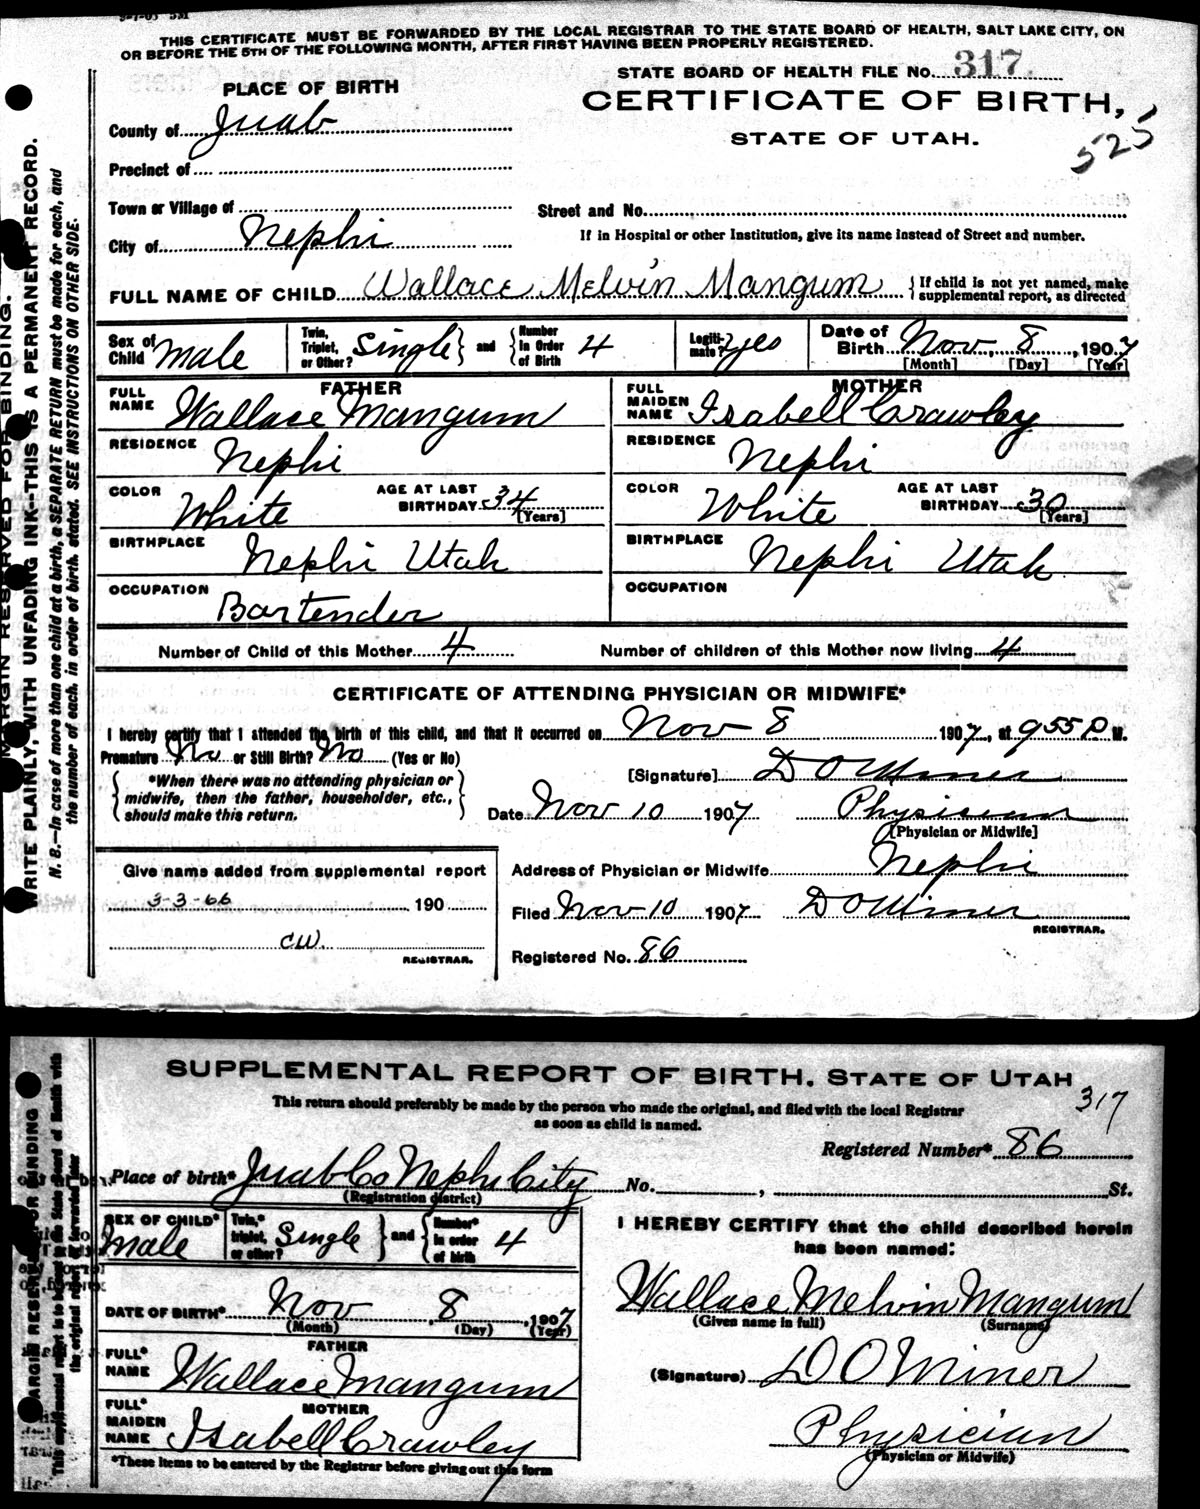 THIS CERTIFICATE MUST BE FORWARDED BY THE LOCAL REGISTRAR TO THE STATE BOARD OF HEALTH, SALT LAKE CITY, ON
OR BEFORE THE 5TH OF THE FOLLOWING MONTH, AFTER FIRST HAVING BEEN PROPERLY REGISTERED.
STATE BOARD OF HEALTH FILE No. 317
PLACE OF BIRTH
CERTIFICATE OF BIRTH,
STATE OF UTAH.
525
County of Juab
Precinct of
Town or Village of
Street and No.
City of Nephi
If in Hospital or other Institution, give its name instead of Street and number.
FULL NAME OF CHILD Wallace Melvin Mangum { If child is not yet named, make supplemental report, as directed
Sex of Child Male Twin, Triplet, or Other? Single } and { Number In Order of Birth 4 Legitimate? yes Date of Birth Nov. 8, 1907
[Month] [Day] [Year]
FATHER MOTHER
FULL NAME Wallace Mangum FULL MAIDEN NAME Isabell Crawley
RESIDENCE Nephi RESIDENCE Nephi
COLOR White AGE AT LAST BIRTHDAY 34 [Years] COLOR White AGE AT LAST BIRTHDAY 30 [Years]
BIRTHPLACE Nephi Utah BIRTHPLACE Nephi Utah
OCCUPATION Bartender OCCUPATION
Number of Child of this Mother 4 Number of children of this Mother now living 4
CERTIFICATE OF ATTENDING PHYSICIAN OR MIDWIFE*
I hereby certify that I attended the birth of this child, and that it occurred on Nov 8 1907, at 9 55 P. M.
Premature No or Still Birth? No (Yes or No)
*When there was no attending physician or midwife, then the father, householder, etc., should make this return.
[Signature] D O Miner
Date Nov 10 1907 Physician
[Physician or Midwife]
Give name added from supplemental report
3-3-66 190
CW.
REGISTRAR.
Address of Physician or Midwife Nephi
Filed Nov 10 1907 D O Miner
REGISTRAR.
Registered No. 86
MARGIN RESERVED FOR BINDING.
WRITE PLAINLY, WITH UNFADING INK--THIS IS A PERMANENT RECORD.
N. B.—In case of more than one child at a birth, a SEPARATE RETURN must be made for each, and
the number of each, in order of birth, stated. SEE INSTRUCTIONS ON OTHER SIDE.
SUPPLEMENTAL REPORT OF BIRTH. STATE OF UTAH
317
This return should preferably be made by the person who made the original, and filed with the local Registrar
as soon as child is named.
Registered Number* 86
Place of birth* Juab Co Nephi City No. , St.
(Registration district)
SEX OF CHILD* Male Twin,* triplet, or other? Single } and { Number* in order of birth 4
I HEREBY CERTIFY that the child described herein
has been named:
DATE OF BIRTH* Nov 8, 1907
(Month) (Day) (Year)
Wallace Melvin Mangum
(Given name in full) (Surname)
FATHER
FULL* NAME Wallace Mangum
(Signature) D O Miner
MOTHER
FULL* MAIDEN NAME Isabell Crawley
Physician
(Physician or Midwife)
*These items to be entered by the Registrar before giving out this form
MARGIN RESERVED FOR BINDING